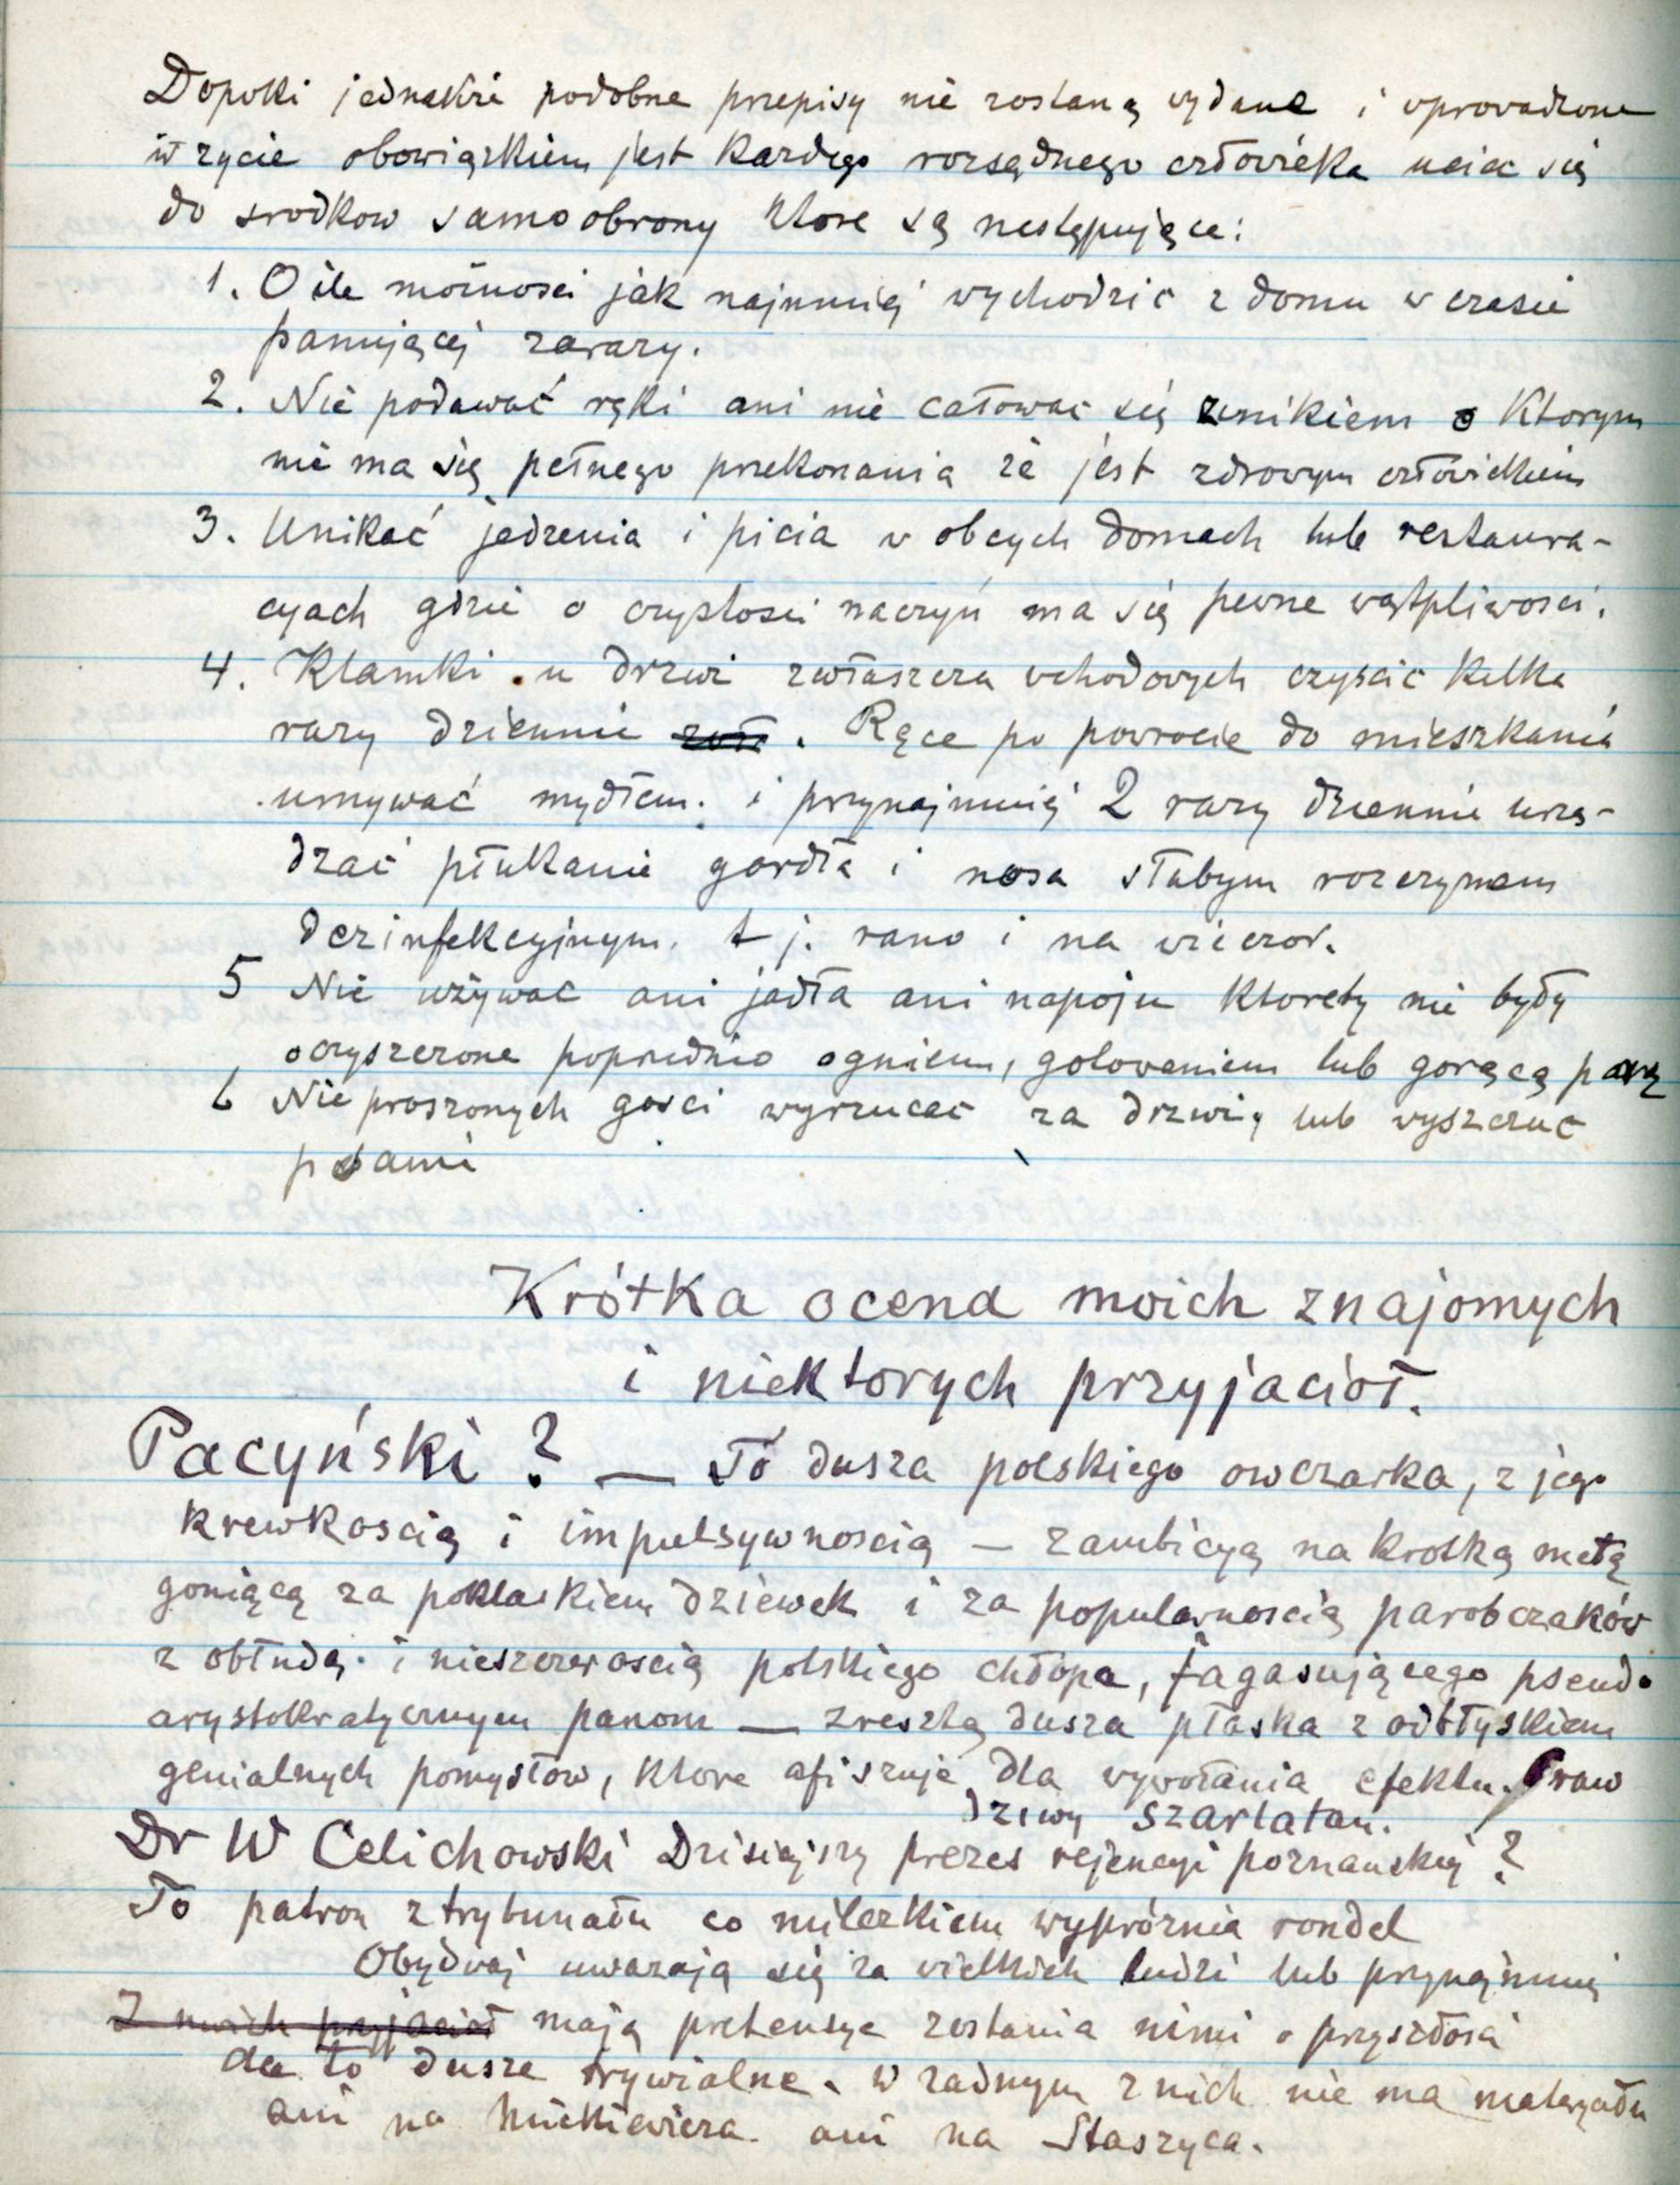 Dopoki jednakże podobne przepisy nie zostaną wydane i wprowadzone
w zycie obowiązkiem jest każdego rozsądnego człowieka uciec się
do srodkow samoobrony ktore są następujące:
1. O ile możnosci jak najmniej wychodzic z domu w czasie
panującej zarazy.
2. Nie podawać ręki ani nie całowac się z nikiem o ktorym
nie ma się pełnego przekonania że jest zdrowym człowiekiem
3. Unikać jedzenia i picia w obcych domach lub restaura-
cyach gdzie o czystosci naczyń ma się pewne wątpliwosci.
4. Klamki u drzwi zwłaszcza wchodowych czyscic kilka
razy dziennie . Ręce po powrocie do mieszkania
umywać mydłem. i przynajmniej 2 razy dziennie urzą-
dzać płukanie gardła i nosa słabym rozczynem
dezinfekcyjnym. t j. rano i na wieczor.
5 Nie używac ani jadła ani napoju ktoreby nie były
oczyszczone poprzednio ogniem, gotowaniem lub gorącą parą
6 Nieproszonych gosci wyrzucac za drzwi, lub wyszczuc
psami
Krótka ocena moich znajomych
i niektorych przyjacioł.
Pacyński? — To dusza polskiego owczarka, z jego
krewkoscią i impulsywnoscią — z ambicyą na krotką metę
goniącą za poklaskiem dziewek i za popularnoscią parobczaków
z obłudą i nieszczeroscią polskiego chłopa, fagasującego pseudo
arystokratycznym panom — zresztą dusza płaska z odbłyskiem
genialnych pomysłow, ktore afiszuje dla wywołania efektu. Praw
dziwy szarlatan.
Dr W Celichowski Dzisiejszy prezes rejencyi poznanskiej?
To patron z trybunału co milczkiem wypróżnia rondel
Obydwaj uwazają się za wielkich ludzi lub przynajmniej
Z moich przyjacioł mają pretensye zostania nimi o przyszłosci
ale to dusze trywialne. W zadnym z nich nie ma materyału
ani na Mickiewicza. ani na Staszyca.